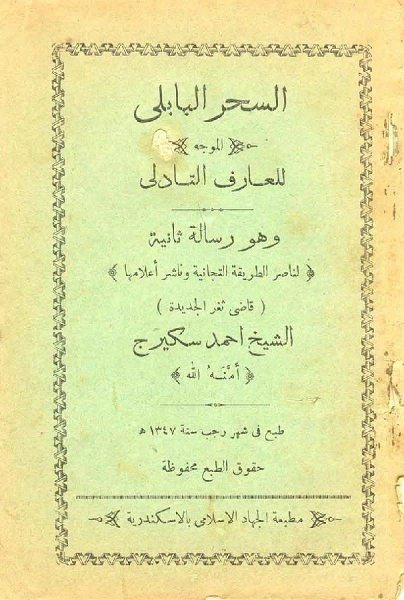 السحر البابلى
الموجه
للعارف التادلى
وهو رسالة ثانية
﴿ لناصر الطريقة التجانية وناشر أعلامها ﴾
( قاضى ثغر الجديدة )
الشيخ احمد سكيرج
﴿ أمنه الله ﴾
طبع فى شهر رجب سنة ١٣٤٧ ھ
حقوق الطبع محفوظة
مطبعة الجهاد الاسلامى بالاسكندرية